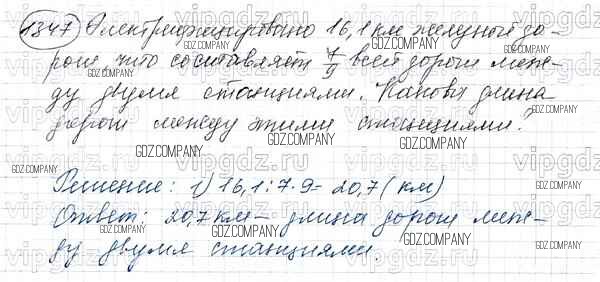 1347) Электрифицировано 16,1 км железной до-
роги, что составляет 7/9 всей дороги меж-
ду двумя станциями. Какова длина
дороги между этими станциями?
Решение: 1) 16,1:7·9=20,7 (км)
Ответ: 20,7 км – длина дороги меж-
ду двумя станциями.
GDZ.COMPANY
vipgdz.ru